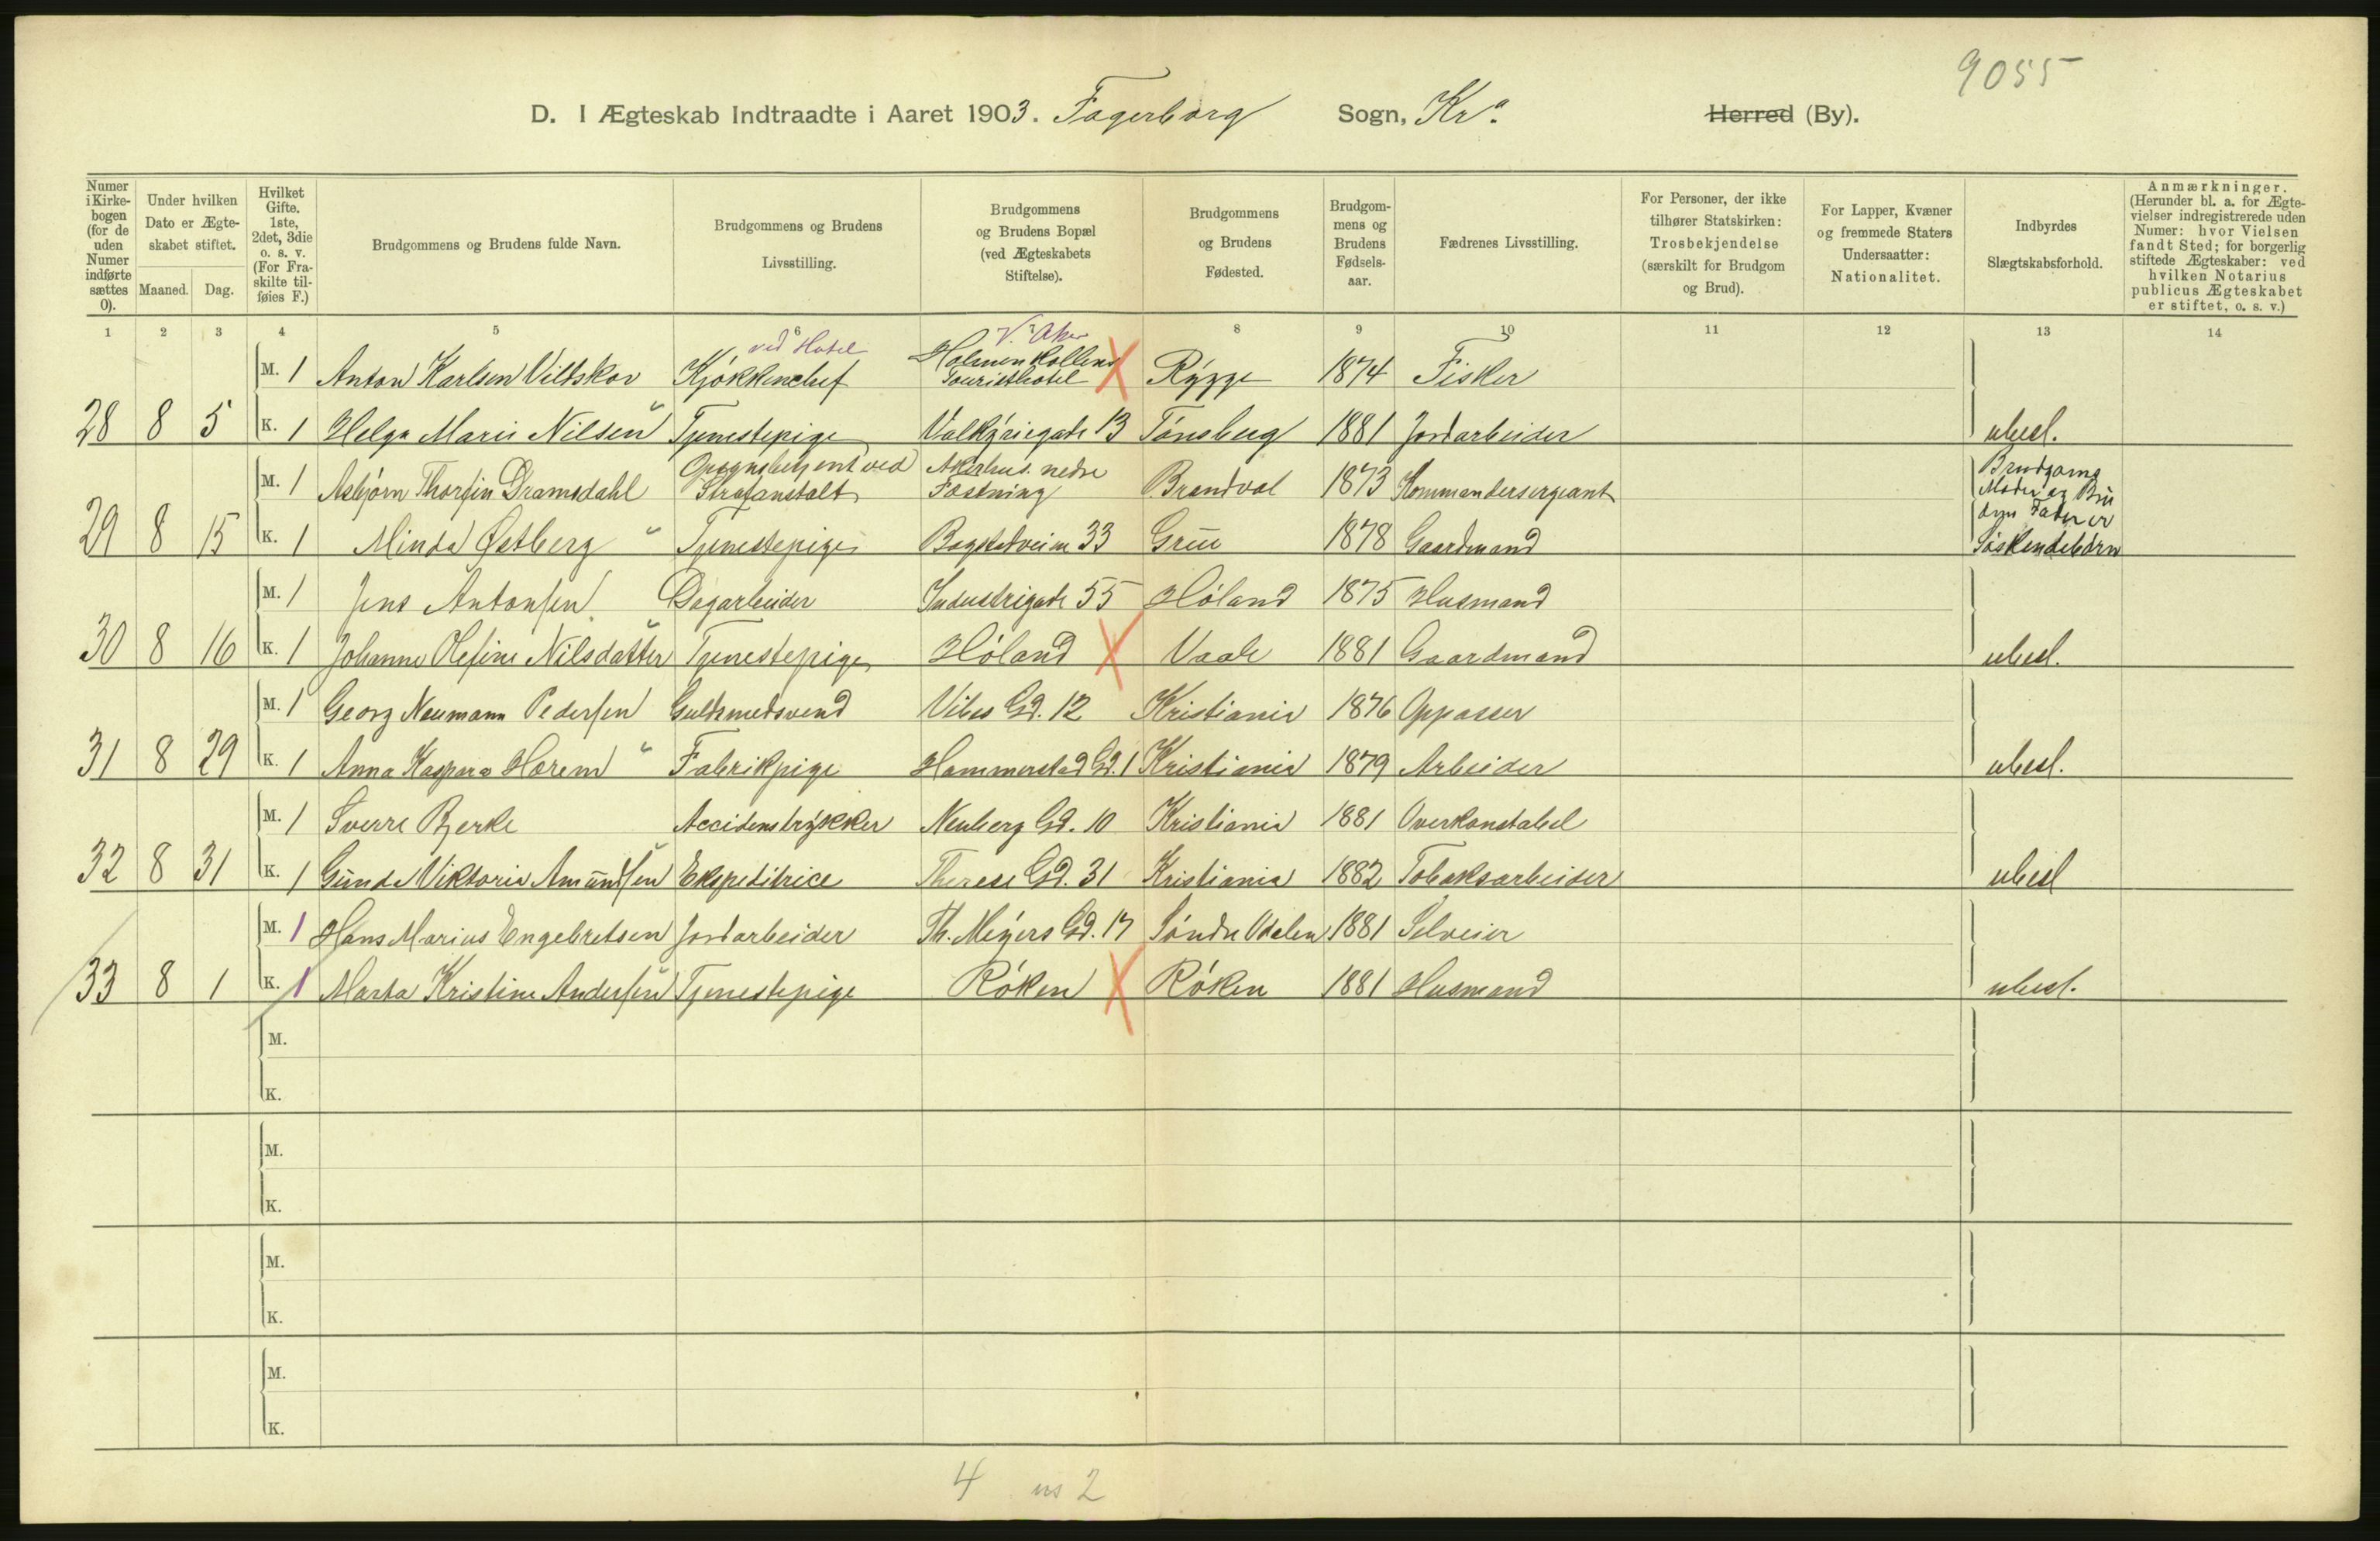 9055
D. I Ægteskab Indtraadte i Aaret 1903. Fagerborg Sogn, Kr.a Herred (By).
Numer i Kirke-bogen (for de uden Numer indførte sættes 0).
Under hvilken Dato er Ægte-skabet stiftet.
Maaned. Dag.
Hvilket Gifte. 1ste, 2det, 3die o. s. v. (For Fra-skilte til-føies F.)
Brudgommens og Brudens fulde Navn.
Brudgommens og Brudens Livsstilling.
Brudgommens og Brudens Bopæl (ved Ægteskabets Stiftelse).
Brudgommens og Brudens Fødested.
Brudgom-mens og Brudens Fødsels-aar.
Fædrenes Livsstilling.
For Personer, der ikke tilhører Statskirken: Trosbekjendelse (særskilt for Brudgom og Brud).
For Lapper, Kvæner og fremmede Staters Undersaatter: Nationalitet.
Indbyrdes Slægtskabsforhold.
Anmærkninger. (Herunder bl. a. for Ægte-vielser indregistrerede uden Numer: hvor Vielsen fandt Sted; for borgerlig stiftede Ægteskaber: ved hvilken Notarius publicus Ægteskabet er stiftet, o. s. v.)
1 2 3 4 5 6 7 8 9 10 11 12 13 14
ved Hotel V. Aker
M. 1 Anton Karlsen Viltskov Kjökkenchef Holmenkollens Touristhotel X Rygge 1874 Fisker
28 8 5 K. 1 Helga Marie Nilsen Tjenestepige Valkyriegade 13 Tönsberg 1881 Jordarbeider ubesl.
M. 1 Asbjörn Thorfin Dramsdahl Opsynsbetjent ved Strafanstalt Akershus nedre Fæstning Brandval 1873 Kommandersergeant
29 8 15 K. 1 Minda Østberg Tjenestepige Bogstadveien 33 Grue 1878 Gaardmand Brudgoms Moder og Brudens Fader er Söskendebörn
M. 1 Jens Antonsen Dagarbeider Industrigade 55 Höland 1875 Husmand
30 8 16 K. 1 Johanne Olefine Nilsdatter Tjenestepige Höland X Vaale 1881 Gaardmand ubesl.
M. 1 Georg Neumann Pedersen Guldsmedsvend Vibes Gd. 12 Kristiania 1876 Oppasser
31 8 29 K. 1 Anna Kaspara Horem Fabrikpige Hammerstad Gd. 1 Kristiania 1879 Arbeider ubesl.
M. 1 Sverre Bjerke Accidenstrykker Neuberg Gd. 10 Kristiania 1881 Overkonstabel
32 8 31 K. 1 Gunda Viktoria Amundsen Ekspeditrice Therese Gd. 31 Kristiania 1882 Tobaksarbeider ubesl
M. 1 Hans Marius Engebretsen Jordarbeider Th. Meyers Gd. 17 Söndre Odalen 1881 Selveier
33 8 1 K. 1 Marta Kristine Andersen Tjenestepige Röken X Röken 1881 Husmand ubesl.
M.
K.
M.
K.
M.
K.
M.
K.
4 us 2